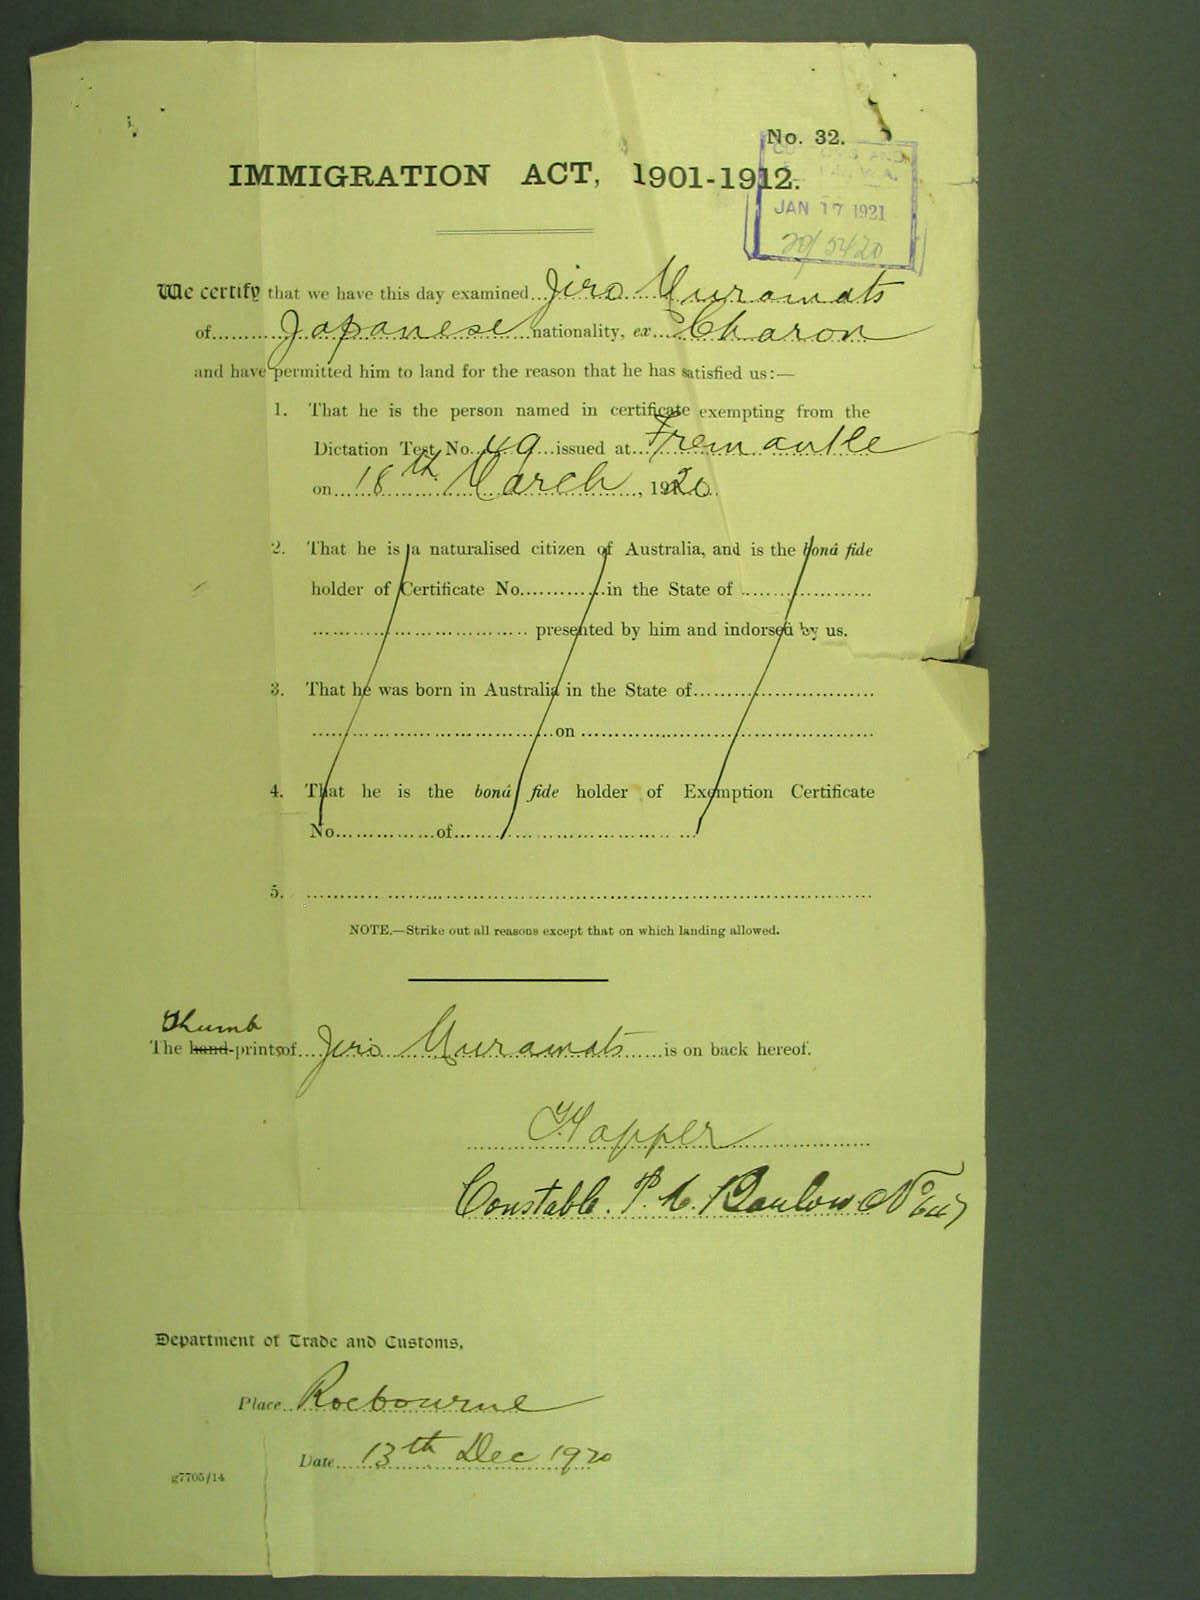 No. 32.
IMMIGRATION ACT, 1901-1912.
JAN 17 1921
20/5420
We certify that we have this day examined Jiro Muramats
of Japanese nationality, ex Charon
and have permitted him to land for the reason that he has satisfied us:—
1. That he is the person named in certificate exempting from the
Dictation Test No. 49 issued at Fremantle
on 18th March, 1920.
2. That he is a naturalised citizen of Australia, and is the boná fide
holder of Certificate No. in the State of
presented by him and indorsed by us.
3. That he was born in Australia in the State of
on
4. That he is the boná fide holder of Exemption Certificate
No. of
5.
NOTE.—Strike out all reasons except that on which landing allowed.
Thumb
The hand-prints of Jiro Muramats is on back hereof.
Hopper
Constable. P. C. No
Department of Trade and Customs,
Place Roebourne
Date 13th Dec 1920
g7705/14